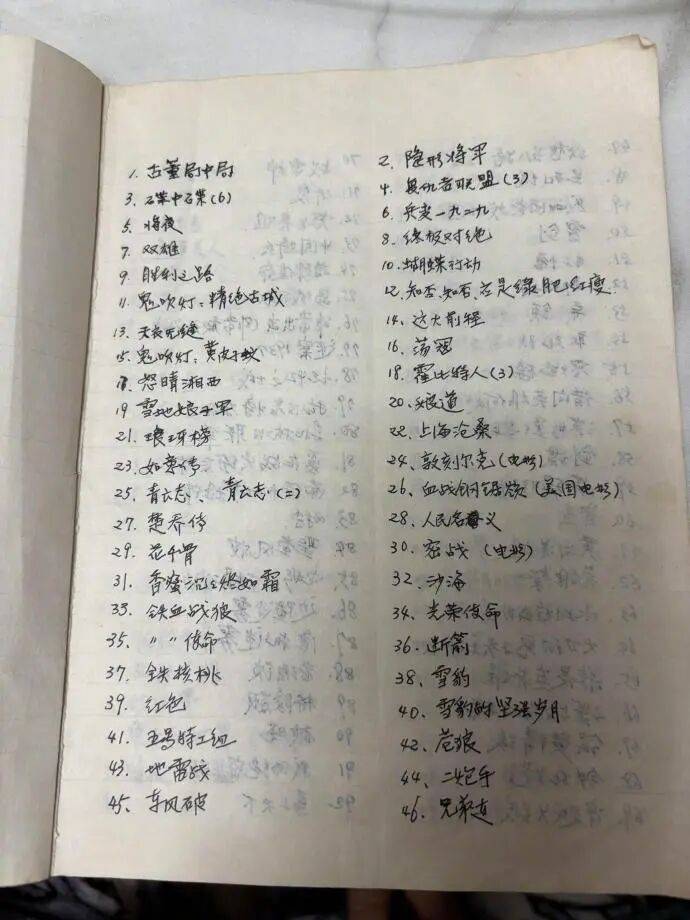 1. 古董局中局
2. 隐形将军
3. 石中石(6)
4. 复仇者联盟(3)
5. 将夜
6. 兵变一九二九
7. 双雄
8. 终极对绝
9. 胜利之路
10. 蝴蝶行动
11. 鬼吹灯:精绝古城
12. 知否,知否,应是绿肥红瘦
13. 天衣无缝
14. 远大前程
15. 鬼吹灯:黄皮子坟
16. 荡寇
17. 怒晴湘西
18. 霍比特人(3)
19. 雪地娘子军
20. 娘道
21. 琅琊榜
22. 上海沧桑
23. 如懿传
24. 敦刻尔克(电影)
25. 青云志、青云志(二)
26. 血战钢锯岭(美国电影)
27. 楚乔传
28. 人民名义
29. 花千骨
30. 密战(电影)
31. 香蜜沉沉烬如霜
32. 沙海
33. 铁血战狼
34. 光荣使命
35. 〃 〃 使命
36. 断箭
37. 铁核桃
38. 雪豹
39. 红色
40. 雪豹的坚强岁月
41. 五号特工组
42. 苍狼
43. 地雷战
44. 二炮手
45. 东风破
46. 兄弟连